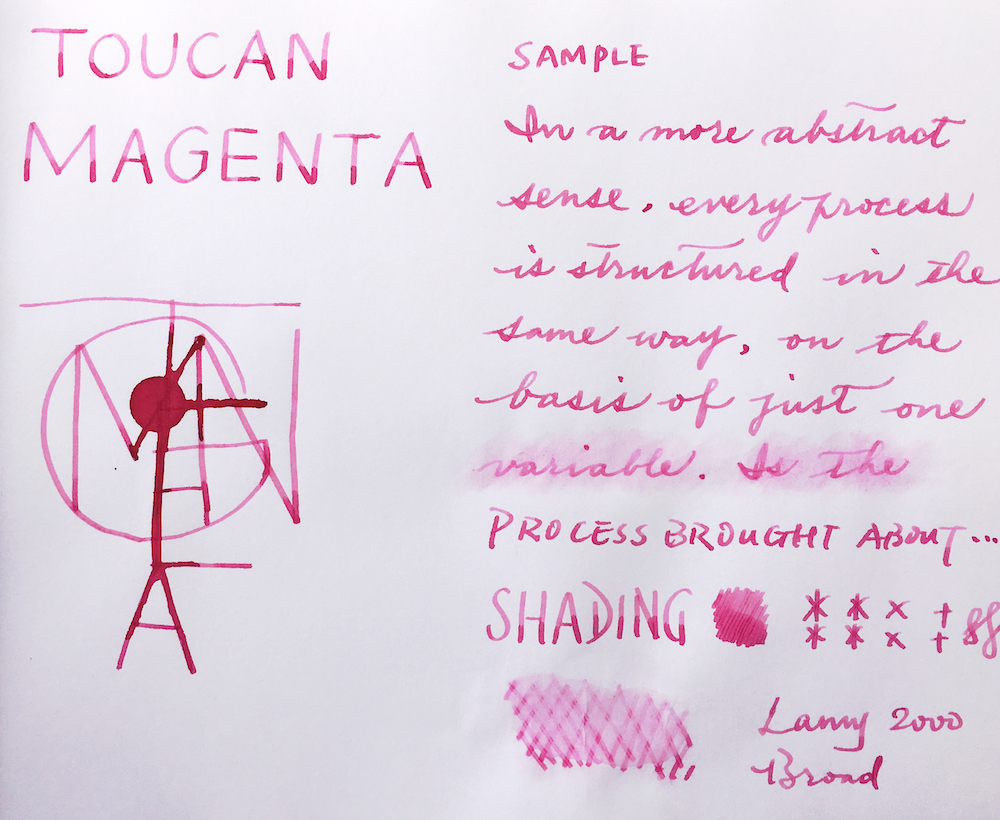 TOUCAN
MAGENTA
SAMPLE
In a more abstract
sense, every process
is structured in the
same way, on the
basis of just one
variable. Is the
PROCESS BROUGHT ABOUT...
SHADING
Lamy 2000
Broad